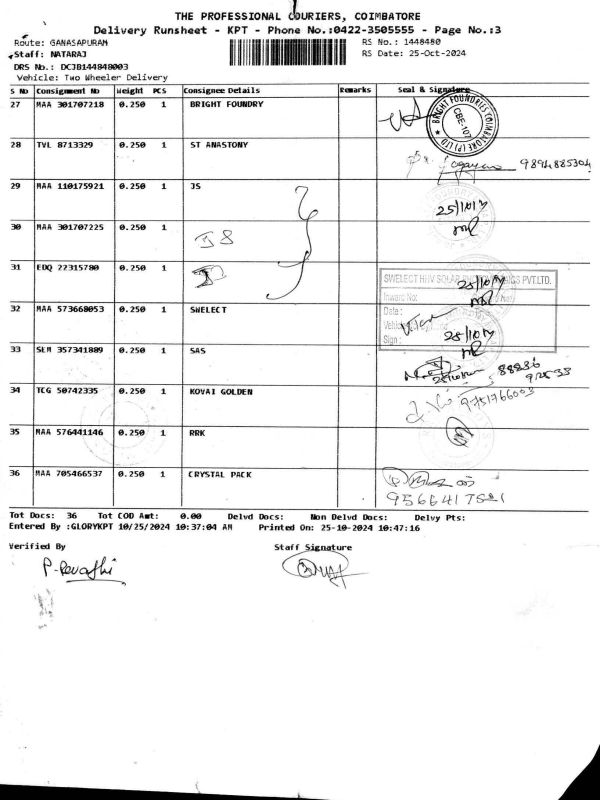 THE PROFESSIONAL COURIERS, COIMBATORE
Delivery Runsheet - KPT - Phone No.:0422-3505555 - Page No.:3
Route: GANASAPURAM RS No.: 1448480
Staff: NATARAJ RS Date: 25-Oct-2024
DRS No.: DCJB144848003
Vehicle: Two Wheeler Delivery
S No Consignment No Weight PCS Consignee Details Remarks Seal & Signature
27 MAA 301707218 0.250 1 BRIGHT FOUNDRY
BRIGHT FOUNDRIES COIMBATORE (P) LTD
CBE-107
28 TVL 8713329 0.250 1 ST ANASTONY
9894885304
29 MAA 110175921 0.250 1 JS
25/10/24
30 MAA 301707225 0.250 1
31 EDQ 22315780 0.250 1
SWELECT HHV SOLAR PHOTOVOLTAICS PVT.LTD.
Inward No:
25/10/24
32 MAA 573668053 0.250 1 SWELECT
Date :
Sign :
25/10/24
33 SLM 357341889 0.250 1 SAS
88236
34 TCG 50742335 0.250 1 KOVAI GOLDEN
9751766003
35 MAA 576441146 0.250 1 RRK
36 MAA 705466537 0.250 1 CRYSTAL PACK
Tot Docs: 36 Tot COD Amt: 0.00 Delvd Docs: Non Delvd Docs: Delvy Pts:
Entered By :GLORYKPT 10/25/2024 10:37:04 AM Printed On: 25-10-2024 10:47:16
Verified By Staff Signature
P. Revathi